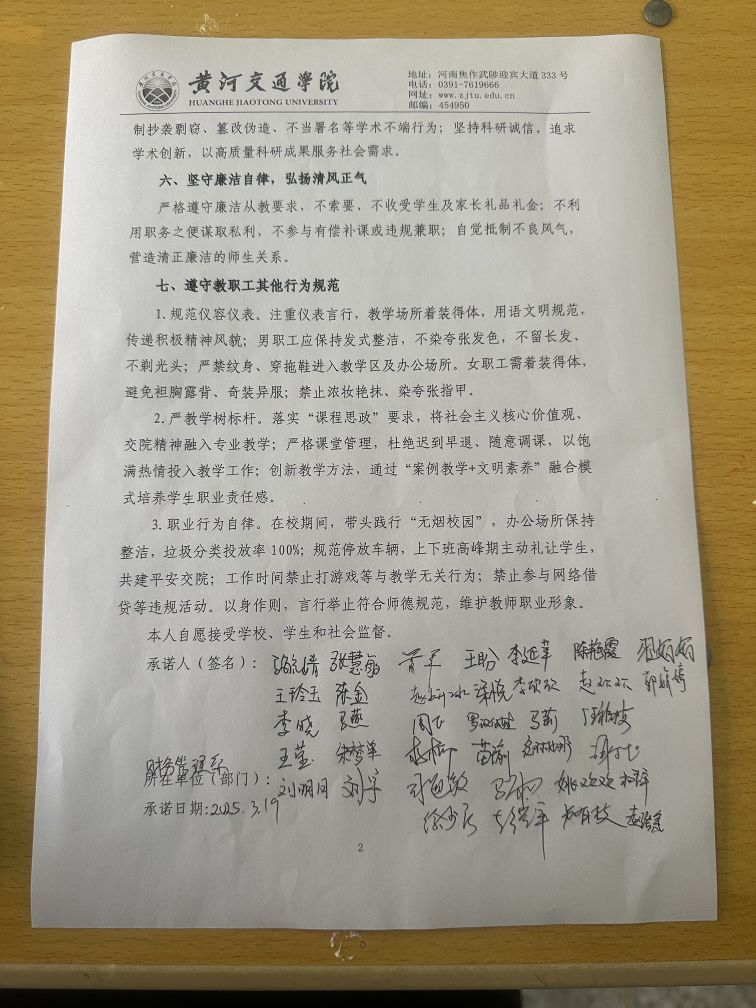 黄河交通学院
HUANGHE JIAOTONG UNIVERSITY
地址：河南焦作武陟迎宾大道 333 号
电话：0391-7619666
网址：www.zjtu.edu.cn
邮编：454950
制抄袭剽窃、篡改伪造、不当署名等学术不端行为；坚持科研诚信，追求
学术创新，以高质量科研成果服务社会需求。
六、坚守廉洁自律，弘扬清风正气
严格遵守廉洁从教要求，不索要、不收受学生及家长礼品礼金；不利
用职务之便谋取私利，不参与有偿补课或违规兼职；自觉抵制不良风气，
营造清正廉洁的师生关系。
七、遵守教职工其他行为规范
1. 规范仪容仪表。注重仪表言行，教学场所着装得体，用语文明规范，
传递积极精神风貌；男职工应保持发式整洁，不染夸张发色，不留长发、
不剃光头；严禁纹身、穿拖鞋进入教学区及办公场所。女职工需着装得体，
避免袒胸露背、奇装异服；禁止浓妆艳抹、染夸张指甲。
2. 严教学树标杆。落实“课程思政”要求，将社会主义核心价值观、
交院精神融入专业教学；严格课堂管理，杜绝迟到早退、随意调课，以饱
满热情投入教学工作；创新教学方法，通过“案例教学+文明素养”融合模
式培养学生职业责任感。
3. 职业行为自律。在校期间，带头践行“无烟校园”，办公场所保持
整洁，垃圾分类投放率 100%；规范停放车辆，上下班高峰期主动礼让学生，
共建平安交院；工作时间禁止打游戏等与教学无关行为；禁止参与网络借
贷等违规活动。以身作则，言行举止符合师德规范，维护教师职业形象。
本人自愿接受学校、学生和社会监督。
承诺人（签名）： 张慧敏 王盼 李延苹 陈艳霞
王玲玉 陈金 梁悦 李欣欣 赵欢欢 郭婧婷
李晓 马燕 周飞 马莉
王莹 宋梦苹 苗瑜
财务管理系
所在单位（部门）： 刘明月 刘宇 姚欢欢
承诺日期：2025.3.19
2